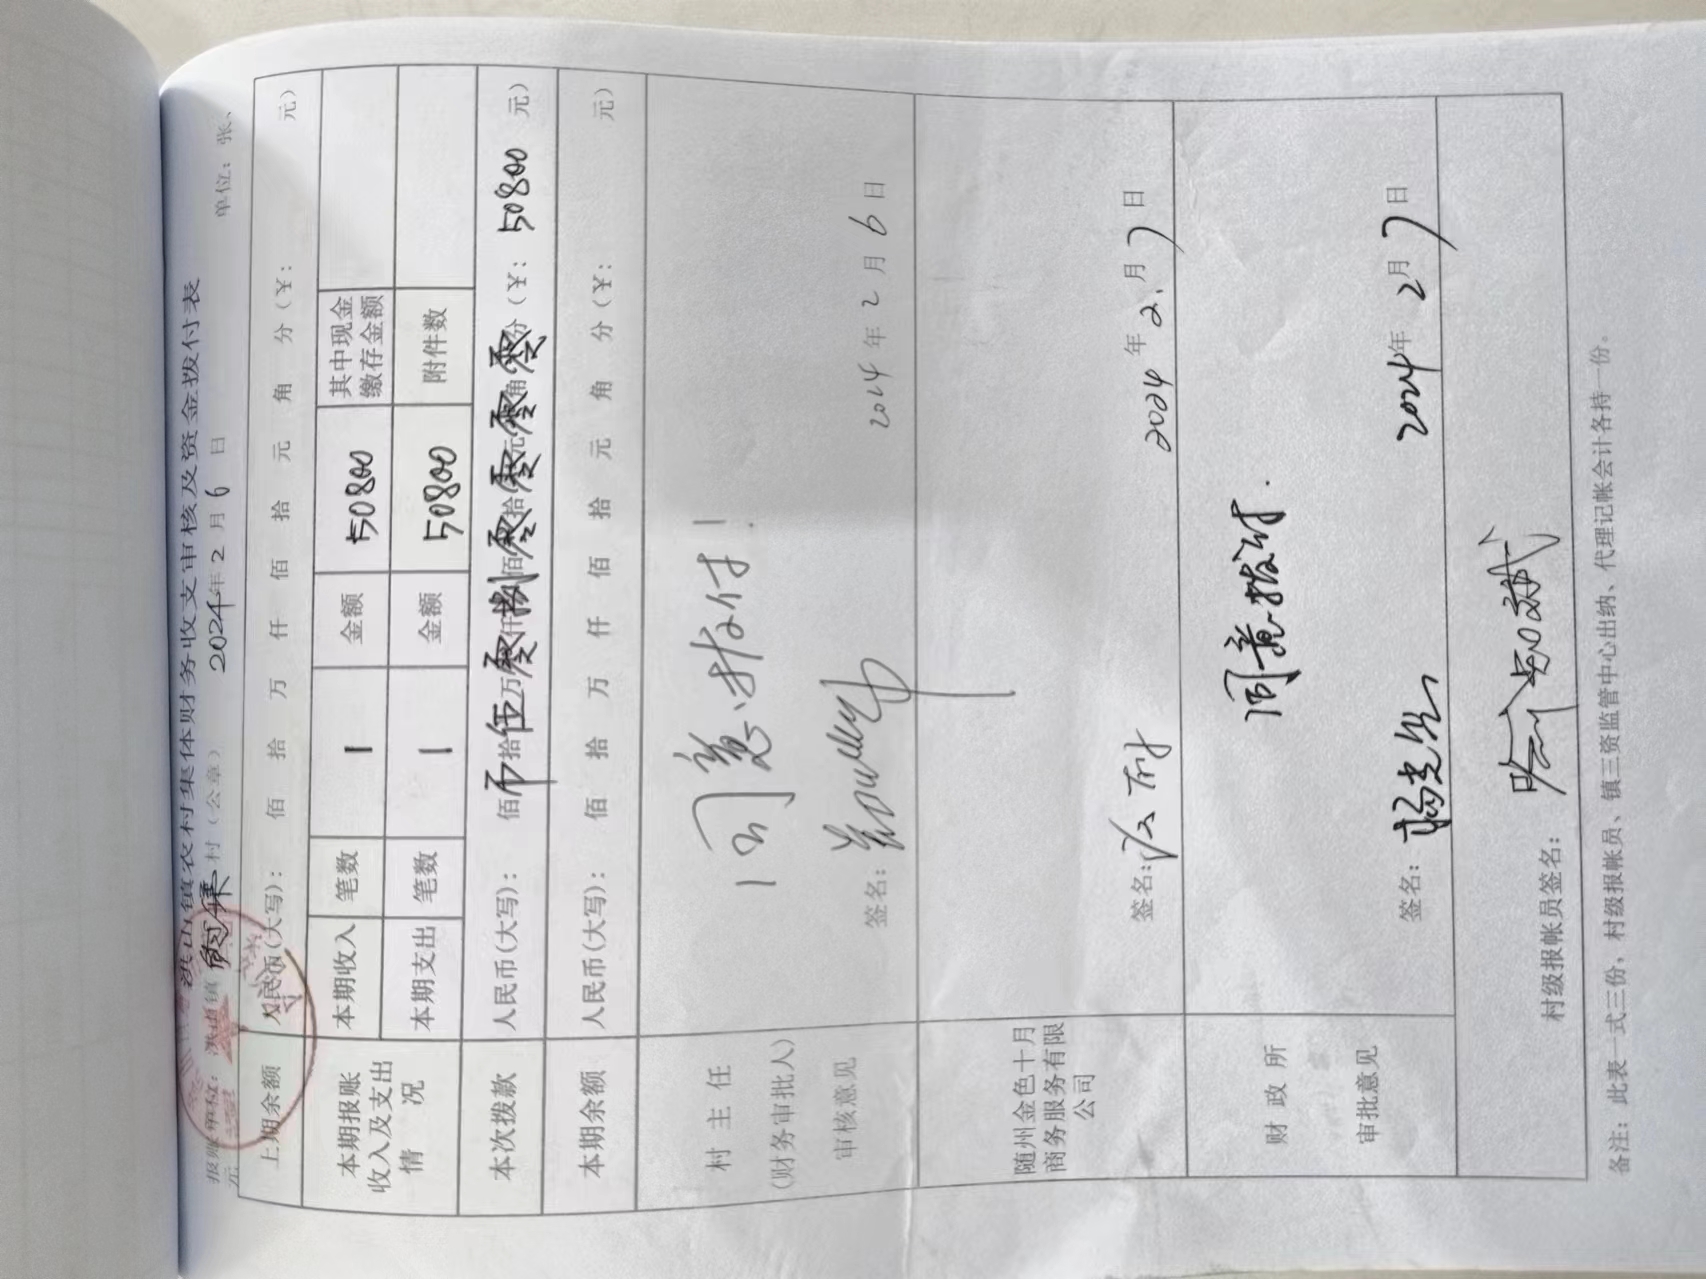 洪山镇农村集体财务收支审核及资金拨付表
报账单位：洪山镇 村（公章） 2024年2月6日 单位：张、元
上期余额 人民币(大写)： 佰 拾 万 仟 佰 拾 元 角 分（¥： 元）
本期报账收入及支出情况 本期收入 笔数 1 金额 50800 其中现金缴存金额
本期支出 笔数 1 金额 50800 附件数
本次拨款 人民币(大写)： 佰币拾伍万零仟捌佰零拾零元零角零分（¥：50800 元）
本期余额 人民币(大写)： 佰 拾 万 仟 佰 拾 元 角 分（¥： 元）
村主任
(财务审批人)
审核意见
同意拨付！
签名： 2024年2月6日
随州金色十月商务服务有限公司
签名： 2024年2月7日
财政所
审批意见
同意拨付.
签名： 2024年2月7日
村级报帐员签名：
备注：此表一式三份，村级报帐员、镇三资监管中心出纳、代理记帐会计各持一份。